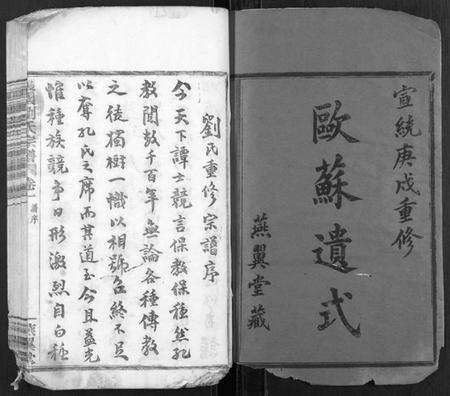 宣統庚戌重修
歐蘇遺式
燕翼堂藏
劉氏重修宗譜序
今天下譚士競言保教保種然孔
教開教千百年無論各種傳教
之徒獨樹一幟以相號召終不足
以奪孔氏之席而其道至今且益光
惟種族競爭日形激烈自白種
劉氏宗譜
譜序